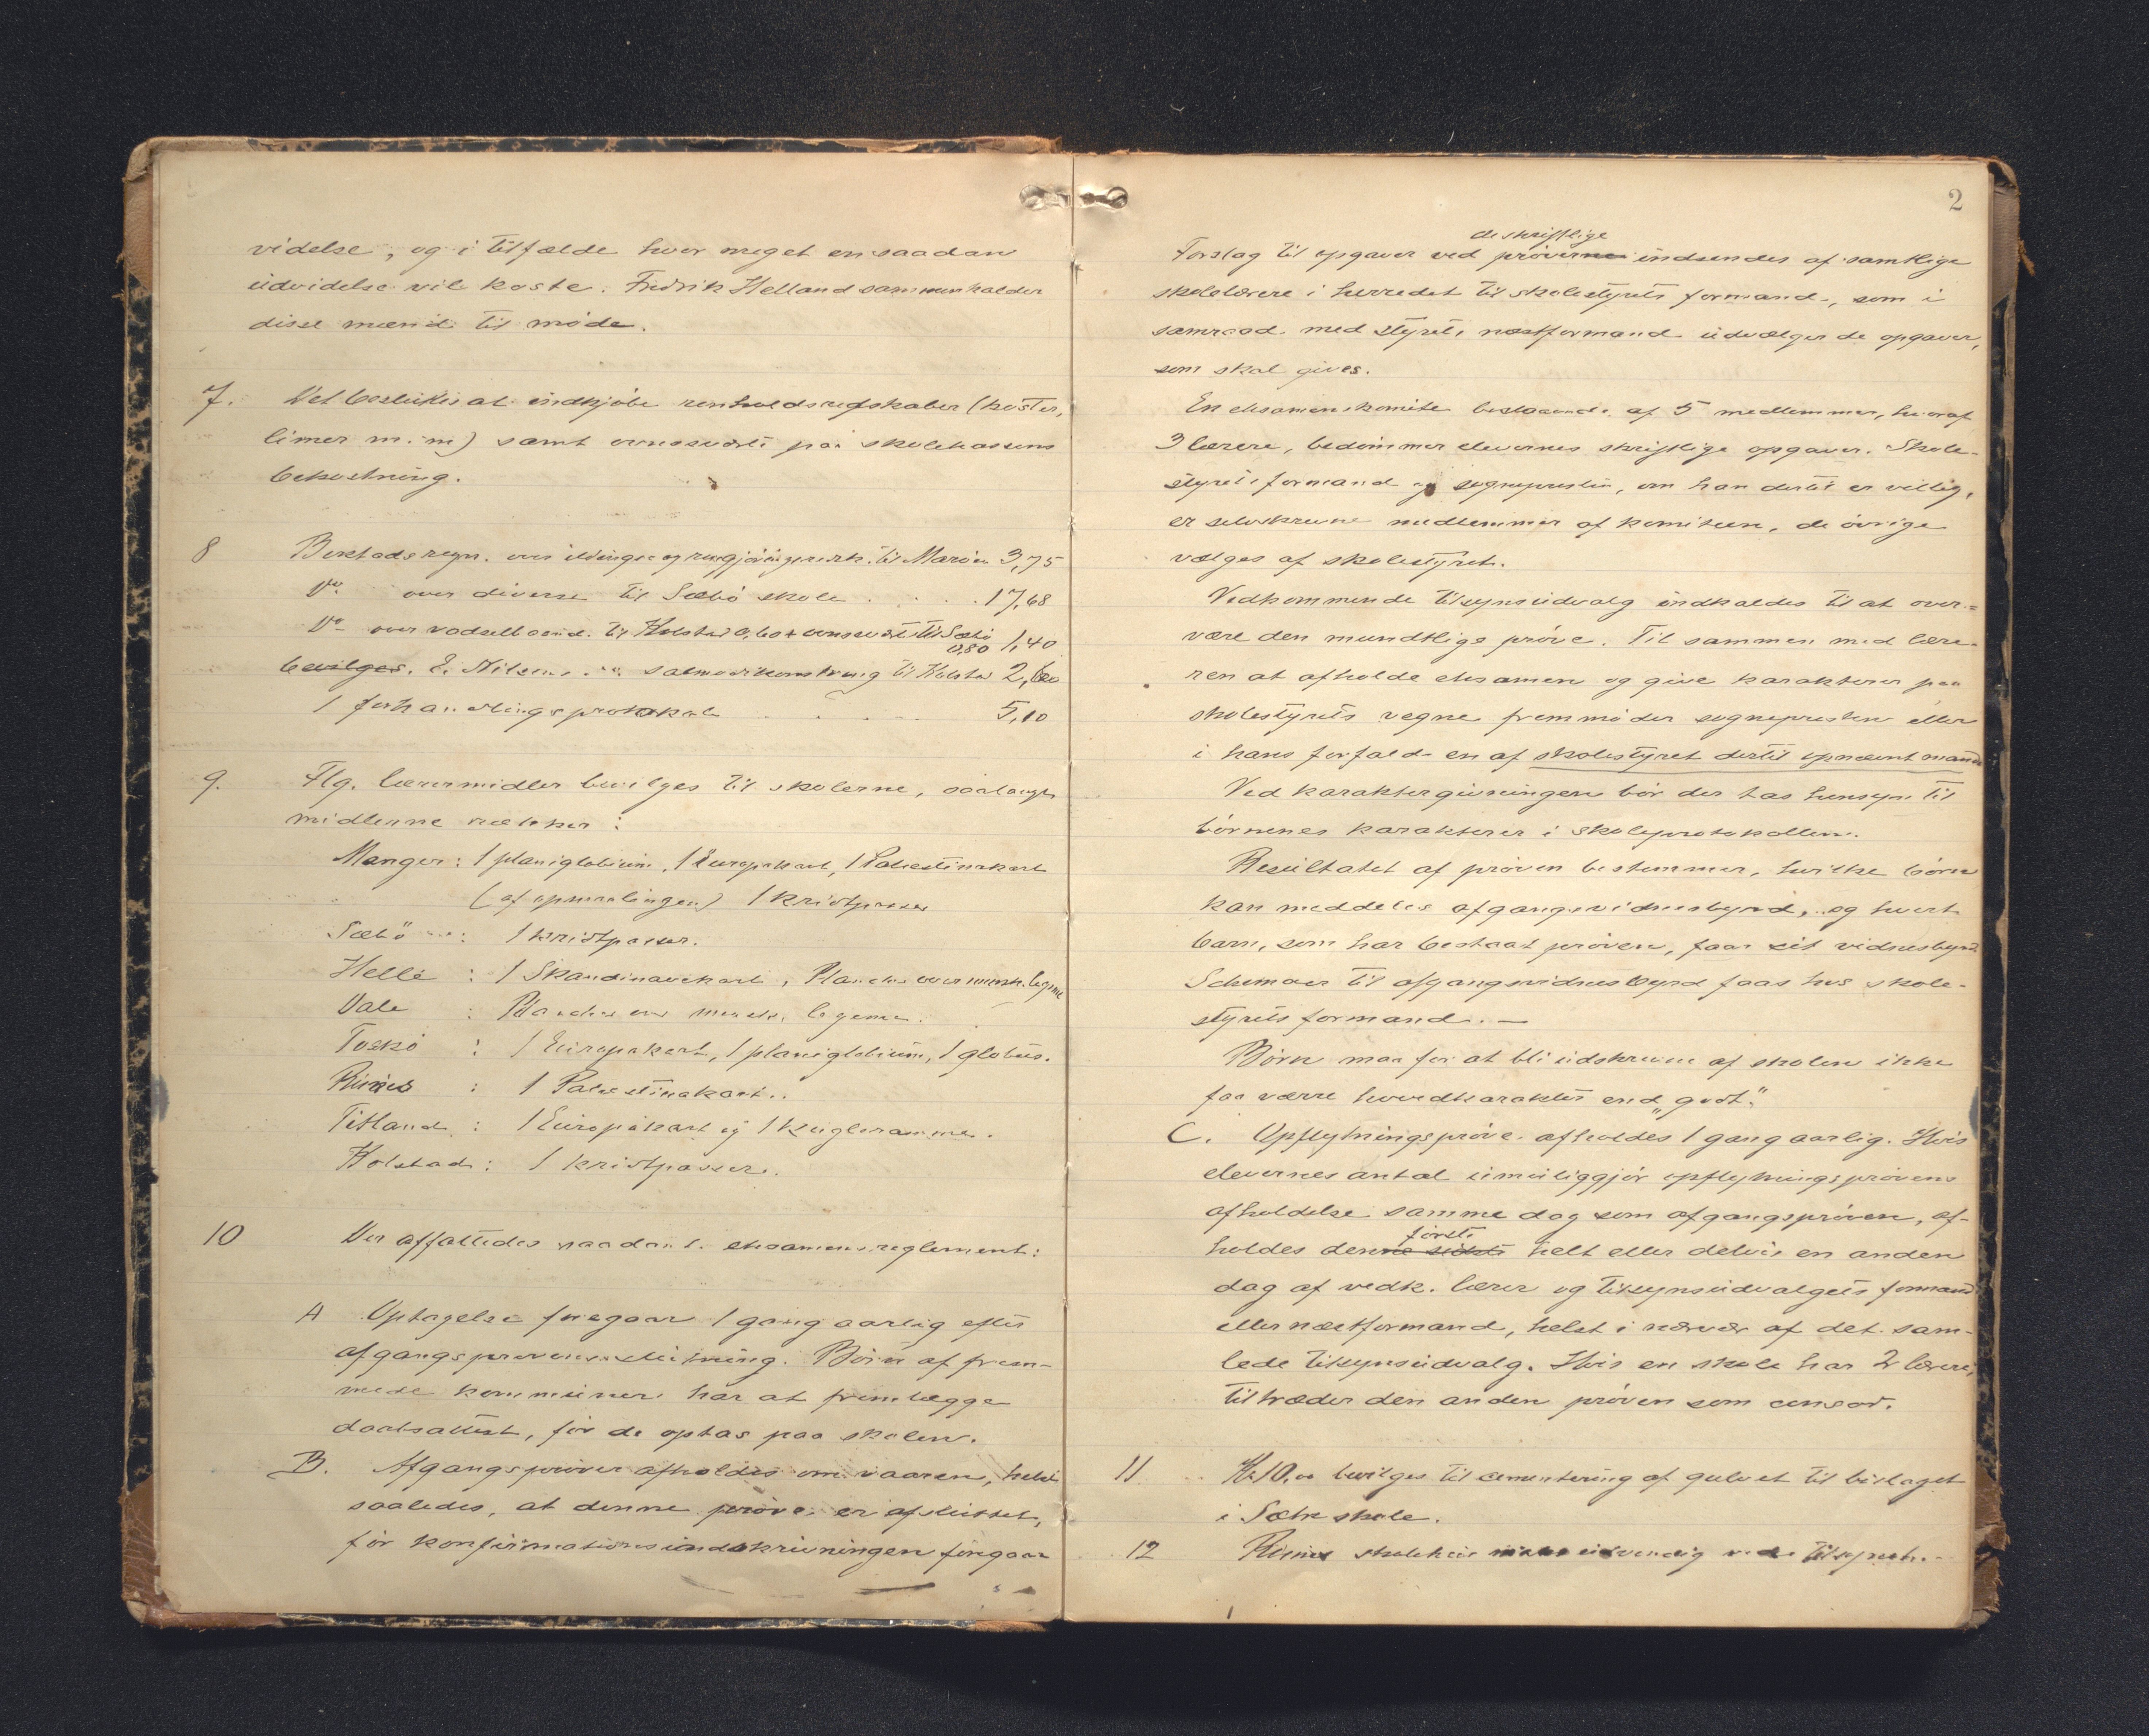 videlse, og i tilfælde hvor meget en saadan
udvidelse vil koste. Fredrik Helland sammenkalder
disse mænd til møde.
7. Det besluttes at indkjøbe renholdsredskaber (koster,
limer m.m) samt ovnssværte paa skolekassens
bekostning.
8 Berstads regn. over ildings og rengjøringsrek. til Marøen 3,75
Do over diverse til Sæbø skole . . . 17,68
Do over vadselbaand. til Holstad 0,60 + ovnssværte til Sæbø
0,80 1,40
bevilges. E. Nilsens salmodikonstreng til Holstad 2,60
1 forhandlingsprotokol . . . 5,10
9. Flg. læremidler bevilges til skolerne, saalangt
midlerne rækker:
Manger: 1 planiglobium, 1 Europakart, 1 Palæstinakart
(af opmalingen) 1 kridtpasser
Sæbö : 1 kridtpasser.
Helle : 1 Skandinavekart, Plancher over mensk. legeme
Vale : Plancher over mensk. legeme.
Toskø : 1 Europakart, 1 planiglobium, 1 globus.
Risnes : 1 Palæstinakart..
Titland : 1 Europakart og 1 kugleramme.
Holstad: 1 kridtpasser.
10 Der affattedes saadant eksamensreglement:
A Optagelse foregaar 1 gang aarlig efter
afgangsprøvens slutning. Børn af frem-
mede kommuner har at fremlægge
daabsattest, før de optas paa skolen.
B. Afgangsprøver afholdes om vaaren, helst
saaledes, at denne prøve er afsluttet,
før konfirmationsindskrivningen foregaar
2
de skriftlige
Forslag til opgaver ved prøverne indsendes af samtlige
skolelærere i herredet til skolestyrets formand, som i
samraad med styrets næstformand udvælger de opgaver,
som skal gives.
En eksamenskomite bestaaende af 5 medlemmer, hvoraf
3 lærere, bedømmer elevernes skriftlige opgaver. Skole-
styrets formand og sognepresten, om han dertil er villig,
er selvskrevne medlemmer af komiteen, de øvrige
vælges af skolestyret.
Vedkommende tilsynsudvalg indkaldes til at over-
være den mundtlige prøve. Til sammen med lære-
ren at afholde eksamen og give karakterer paa
skolestyrets vegne fremmøder sognepresten eller
i hans forfald en af skolestyret dertil opnævnt mand
Ved karaktergivningen bør der tas hensyn til
børnenes karakterer i skoleprotokollen.
Resultatet af prøven bestemmer, hvilke børn
kan meddeles afgangsvidnesbyrd, og hvert
barn, som har bestaat prøven, faar sit vidnesbyrd.
Schemaer til afgangsvidnesbyrd faas hos skole-
styrets formand. —
Børn maa for at bli udskrevne af skolen ikke
faa værre hovedkarakter end „godt."
C. Opflytningsprøve afholdes 1 gang aarlig. Hvis
elevernes antal umuliggjør opflytningsprøvens
afholdelse samme dag som afgangsprøven, af-
første
holdes denne sidste helt eller delvis en anden
dag af vedk. lærer og tilsynsudvalgets formand
eller næstformand, helst i nærvær af det sam-
lede tilsynsudvalg. Hvis en skole har 2 lærere,
tiltræder den anden prøven som censor.
11 Kr 10.00 bevilges til cementering af gulvet til bislaget
i Sæbø skole.
12 Risnes skolehus udvendig